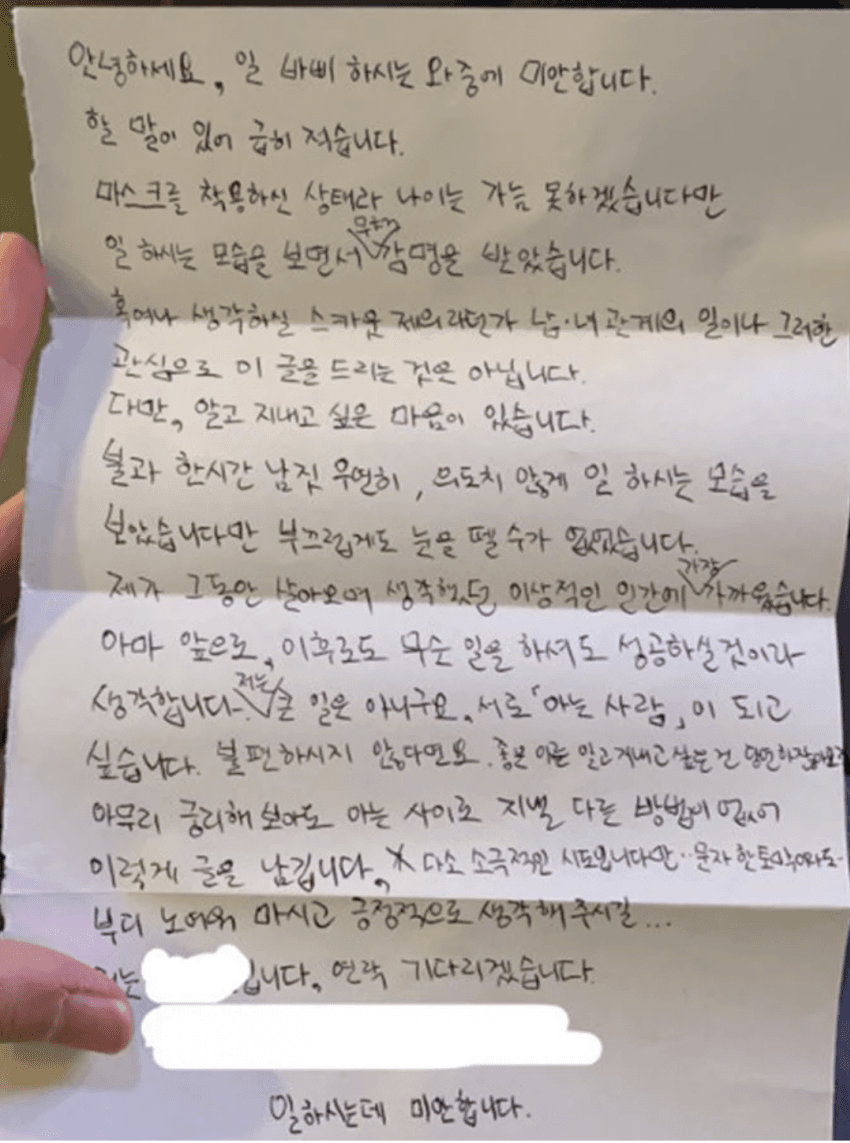 안녕하세요, 일 바삐 하시는 와중에 미안합니다.
할 말이 있어 급히 적습니다.
마스크를 착용하신 상태라 나이는 가늠 못하겠습니다만
일 하시는 모습을 보면서 무척 감명을 받았습니다.
혹여나 생각하실 스카웃 제의라던가 남·녀 관계의 일이나 그러한
관심으로 이 글을 드리는 것은 아닙니다.
다만, 알고 지내고 싶은 마음이 있습니다.
불과 한시간 남짓 우연히, 의도치 않게 일 하시는 모습을
보았습니다만 부끄럽게도 눈을 뗄 수가 없었습니다.
제가 그동안 살아오며 생각했던 이상적인 인간에 가장 가까웠습니다.
아마 앞으로, 이후로도 무슨 일을 하셔도 성공하실것이라
생각합니다. 저는 큰 일은 아니구요, 서로「아는 사람」이 되고
싶습니다. 불편하시지 않다면요. 좋은 이를 알고 지내고 싶은 건 당연하잖아요
아무리 궁리해 보아도 아는 사이로 지낼 다른 방법이 없어
이렇게 글을 남깁니다, 다소 소극적인 시도입니다만..문자 한
부디 노여워 마시고 긍정적으로 생각해 주시길...
저는 입니다, 연락 기다리겠습니다.
일하시는데 미안합니다.